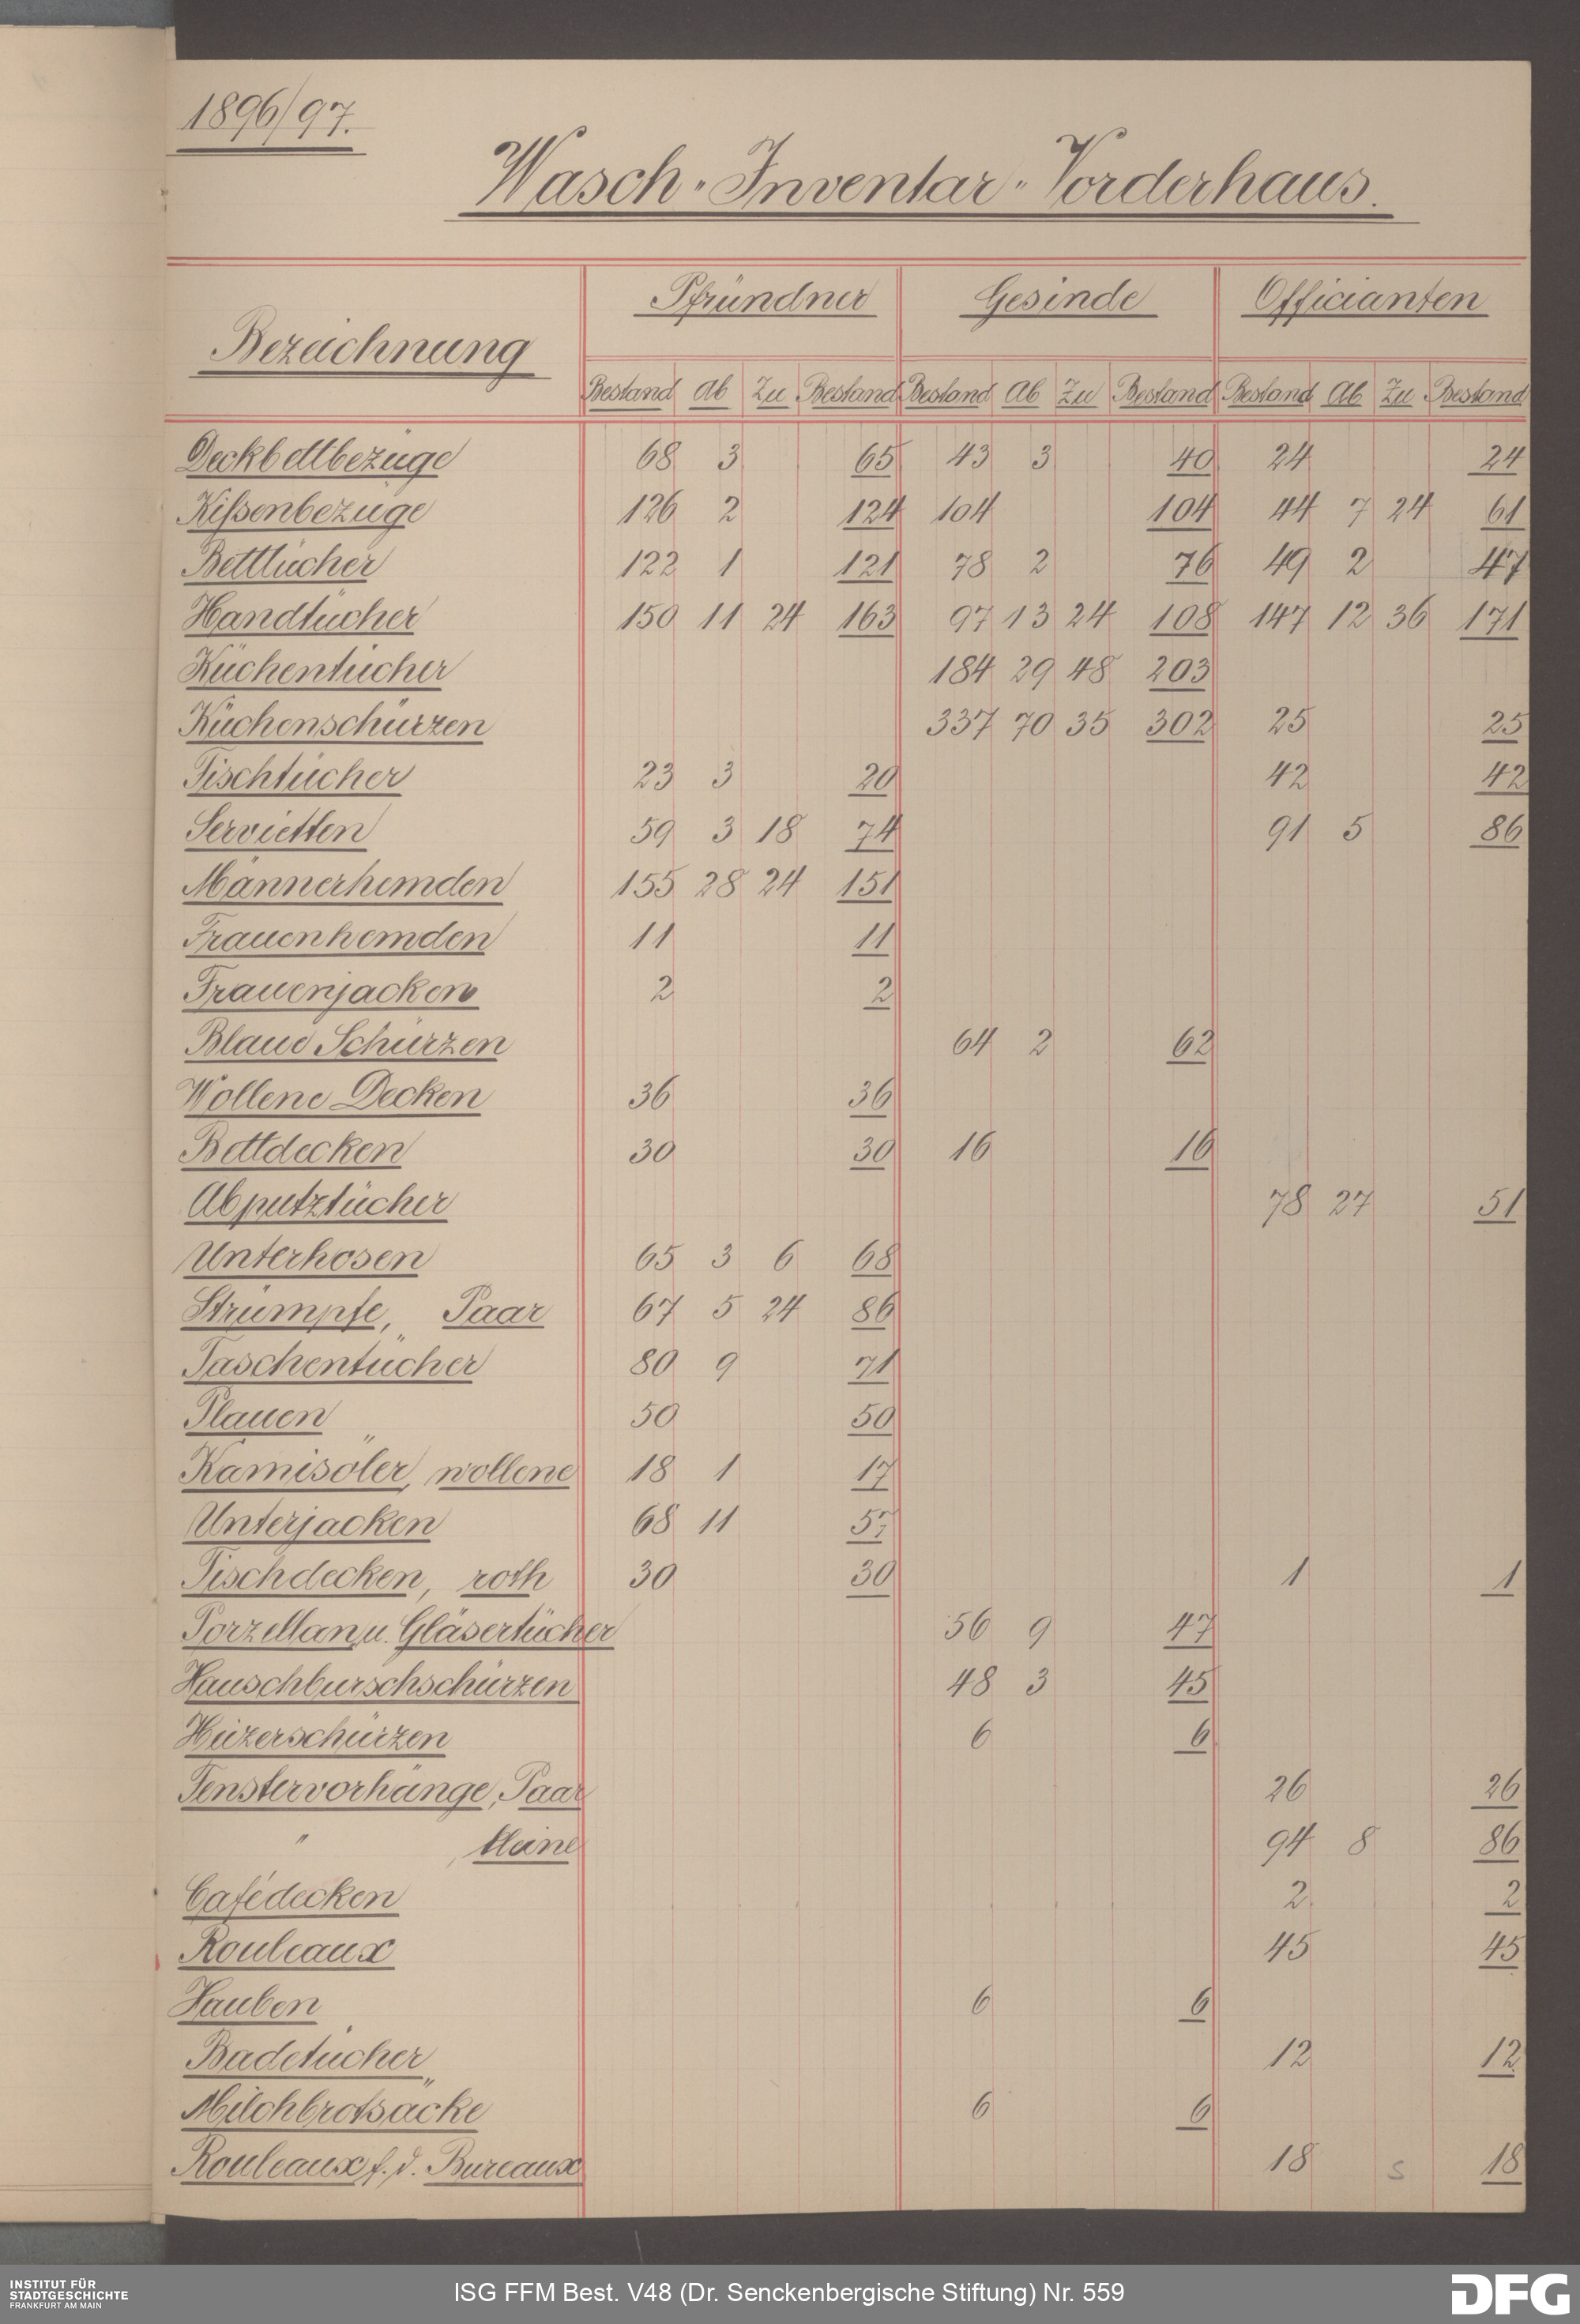 1896/97.
Wasch-Inventar-Vorderhaus.
Bezeichnung Pfründner Gesinde Officianten
Bestand Ab Zu Bestand Bestand Ab Zu Bestand Bestand Ab Zu Bestand
Deckbettbezüge 68 3 65 43 3 40 24 24
Kißenbezüge 126 2 124 104 104 44 7 24 61
Bettücher 122 1 121 78 2 76 49 2 47
Handtücher 150 11 24 163 97 13 24 108 147 12 36 171
Küchentücher 184 29 48 203
Küchenschürzen 337 70 35 302 25 25
Tischtücher 23 3 20 42 42
Servietten 59 3 18 74 91 5 86
Männerhemden 155 28 24 151
Frauenhemden 11 11
Frauenjacken 2 2
Blaue Schürzen 64 2 62
Wollene Decken 36 36
Bettdecken 30 30 16 16
Abputztücher 78 27 51
Unterhosen 65 3 6 68
Strümpfe, Paar 67 5 24 86
Taschentücher 80 9 71
Plauen 50 50
Kamisöler, wollene 18 1 17
Unterjacken 68 11 57
Tischdecken, roth 30 30 1 1
Porzellan u. Gläsertücher 56 9 47
Hauschburschschürzen 48 3 45
Heizerschürzen 6 6
Fenstervorhänge, Paar 26 26
" , kleine 94 8 86
Cafédecken 2 2
Rouleaux 45 45
Hauben 6 6
Badetücher 12 12
Milchbrotsäcke 6 6
Rouleaux f. d. Bureaux 18 s 18
INSTITUT FÜR
STADTGESCHICHTE
FRANKFURT AM MAIN
ISG FFM Best. V48 (Dr. Senckenbergische Stiftung) Nr. 559
DFG